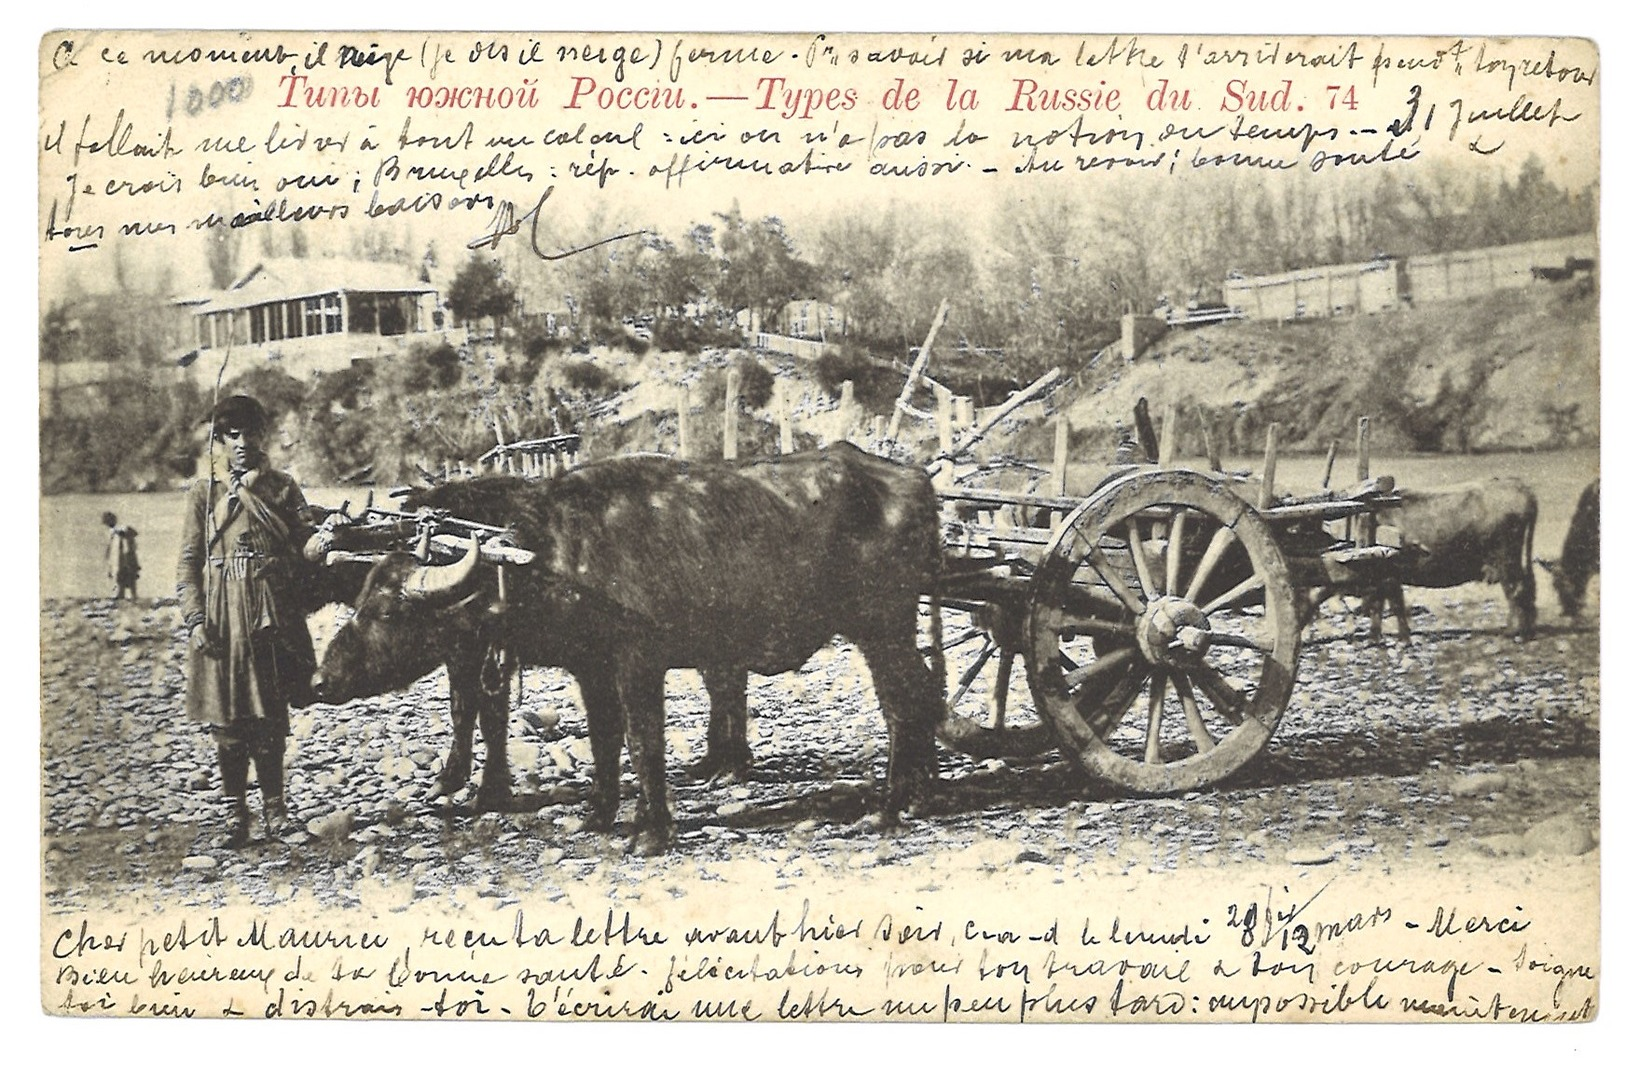 A ce moment, il neige (je dis il neige) ferme. Pr savoir si ma lettre t'arriverait pendt ton retour
1000
Типы южной Россіи. — Types de la Russie du Sud. 74
il fallait me livrer à tout un calcul : ici on n'a pas la notion du temps. - 31 Juillet &
Je crois bien oui ; Bruxelles : rép. affirmative aussi. - Au revoir ; bonne santé
mes meilleurs baisers
Cher petit Maurice, reçu ta lettre avant hier soir, c-a-d le lundi 28 / 12 mars - Merci
Bien heureux de ta bonne santé. félicitations pour ton travail & ton courage - Soigne
toi bien & distrais-toi - T'écrirai une lettre un peu plus tard : impossible maintenant